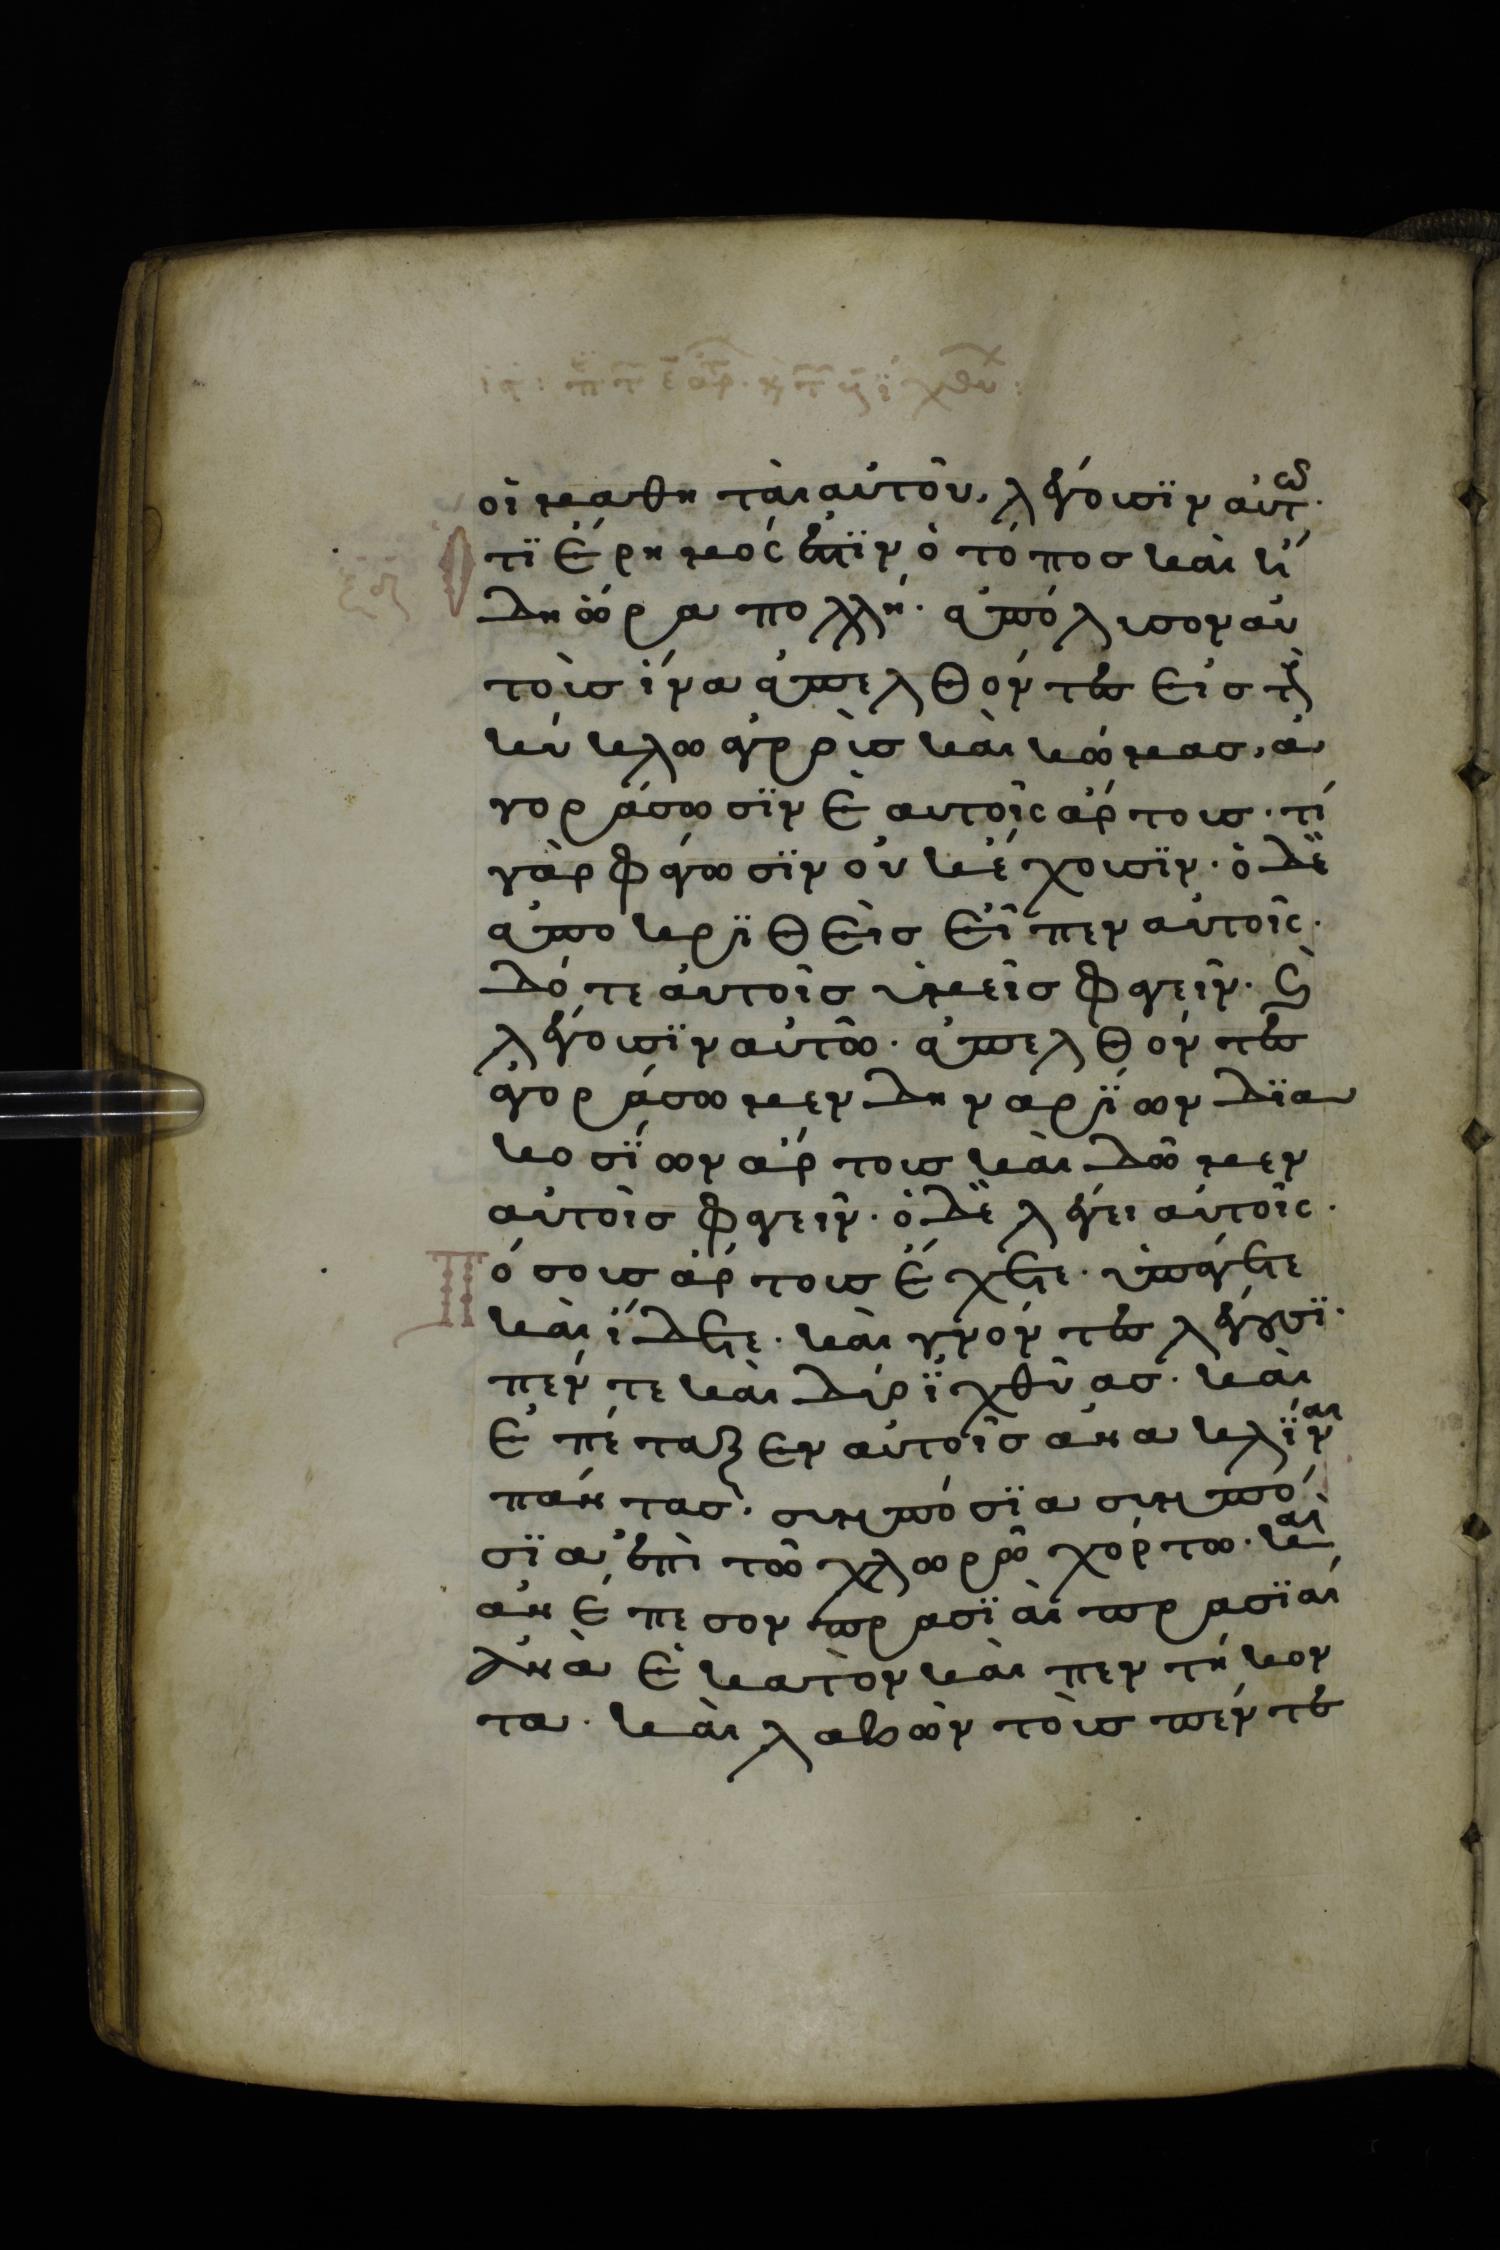 οἱ μαθηταὶ αὐτοῦ, λέγουσϊν αὐτῶ·
ὅτϊ ἔρημός ἐστϊν ὁ τόπος καὶ ἤ
δη ὥρα πολλή· ἀπόλυσον αὐ
τοὺσ ἵνα ἀπελθόντες εἰσ τοὺς
κύκλω ἀγροὺσ καὶ κώμασ, ἀ
γοράσωσϊν ἑαυτοῖς ἄρτουσ· τί
γὰρ φάγωσϊν οὐκ ἔχουσϊν· ὁ δὲ
ἀποκρϊθεὶσ εἶπεν αὐτοῖς·
δότε αὐτοῖσ ὑμεῖσ φαγεῖν· καὶ
λέγουσϊν αὐτῶ· ἀπελθόντες
ἀγοράσωμεν δηναρΐων δϊα
κοσΐων ἄρτουσ καὶ δῶμεν
αὐτοῖσ φαγεῖν· ὁ δὲ λέγει αὐτοῖς·
Πόσουσ ἄρτουσ ἔχετε· ὑπάγετε
καὶ ἴδετε· καὶ γνόντες λέγουσϊ·
πέντε καὶ δύο ἰχθύασ· καὶ
ἐπέταξεν αὐτοῖσ ἀνακλῖναι
πάντασ· συμπόσϊα συμπό
σϊα ἐπὶ τῶ χλωρῶ χόρτω· καὶ
ἀνέπεσον πρασϊαὶ πρασϊαί
ἀνὰ ἑκατὸν καὶ πεντήκον
τα· καὶ λαβὼν τοὺσ πέντε